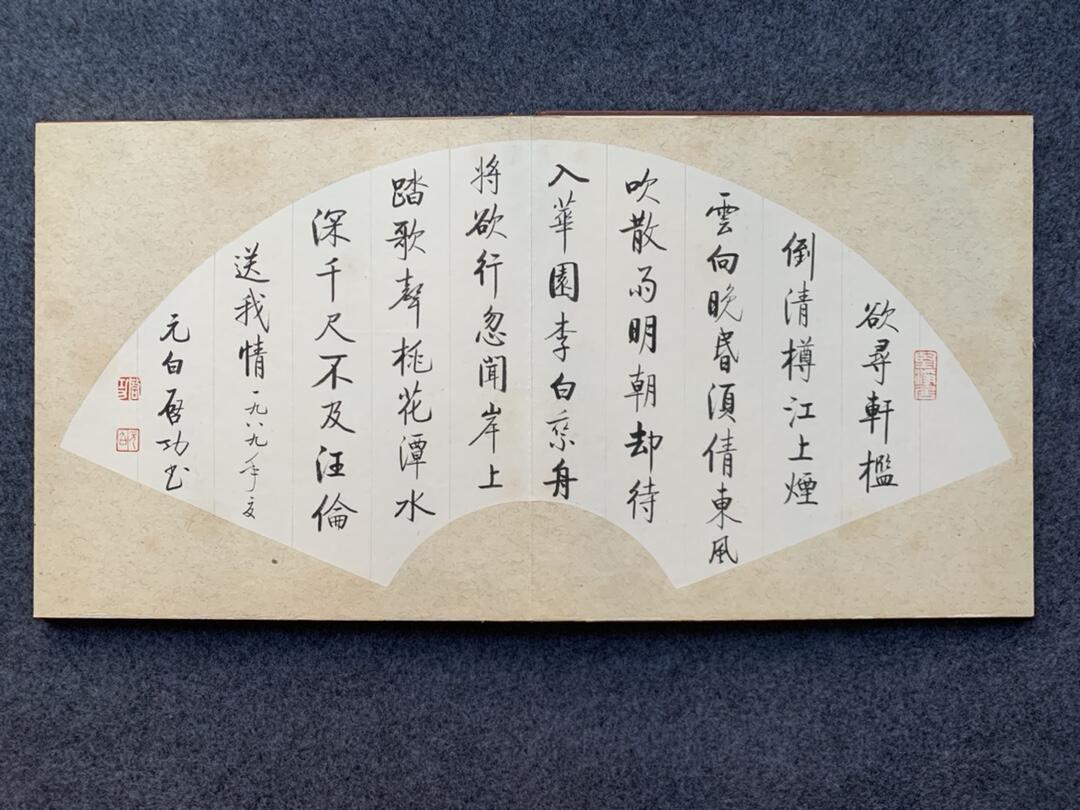 欲尋軒檻
倒清樽江上煙
雲向晚昏須倩東風
吹散雨明朝却待
入華園李白乘舟
將欲行忽聞岸上
踏歌聲桃花潭水
深千尺不及汪倫
送我情一九八九年夏
元白啓功書
啟功
元白